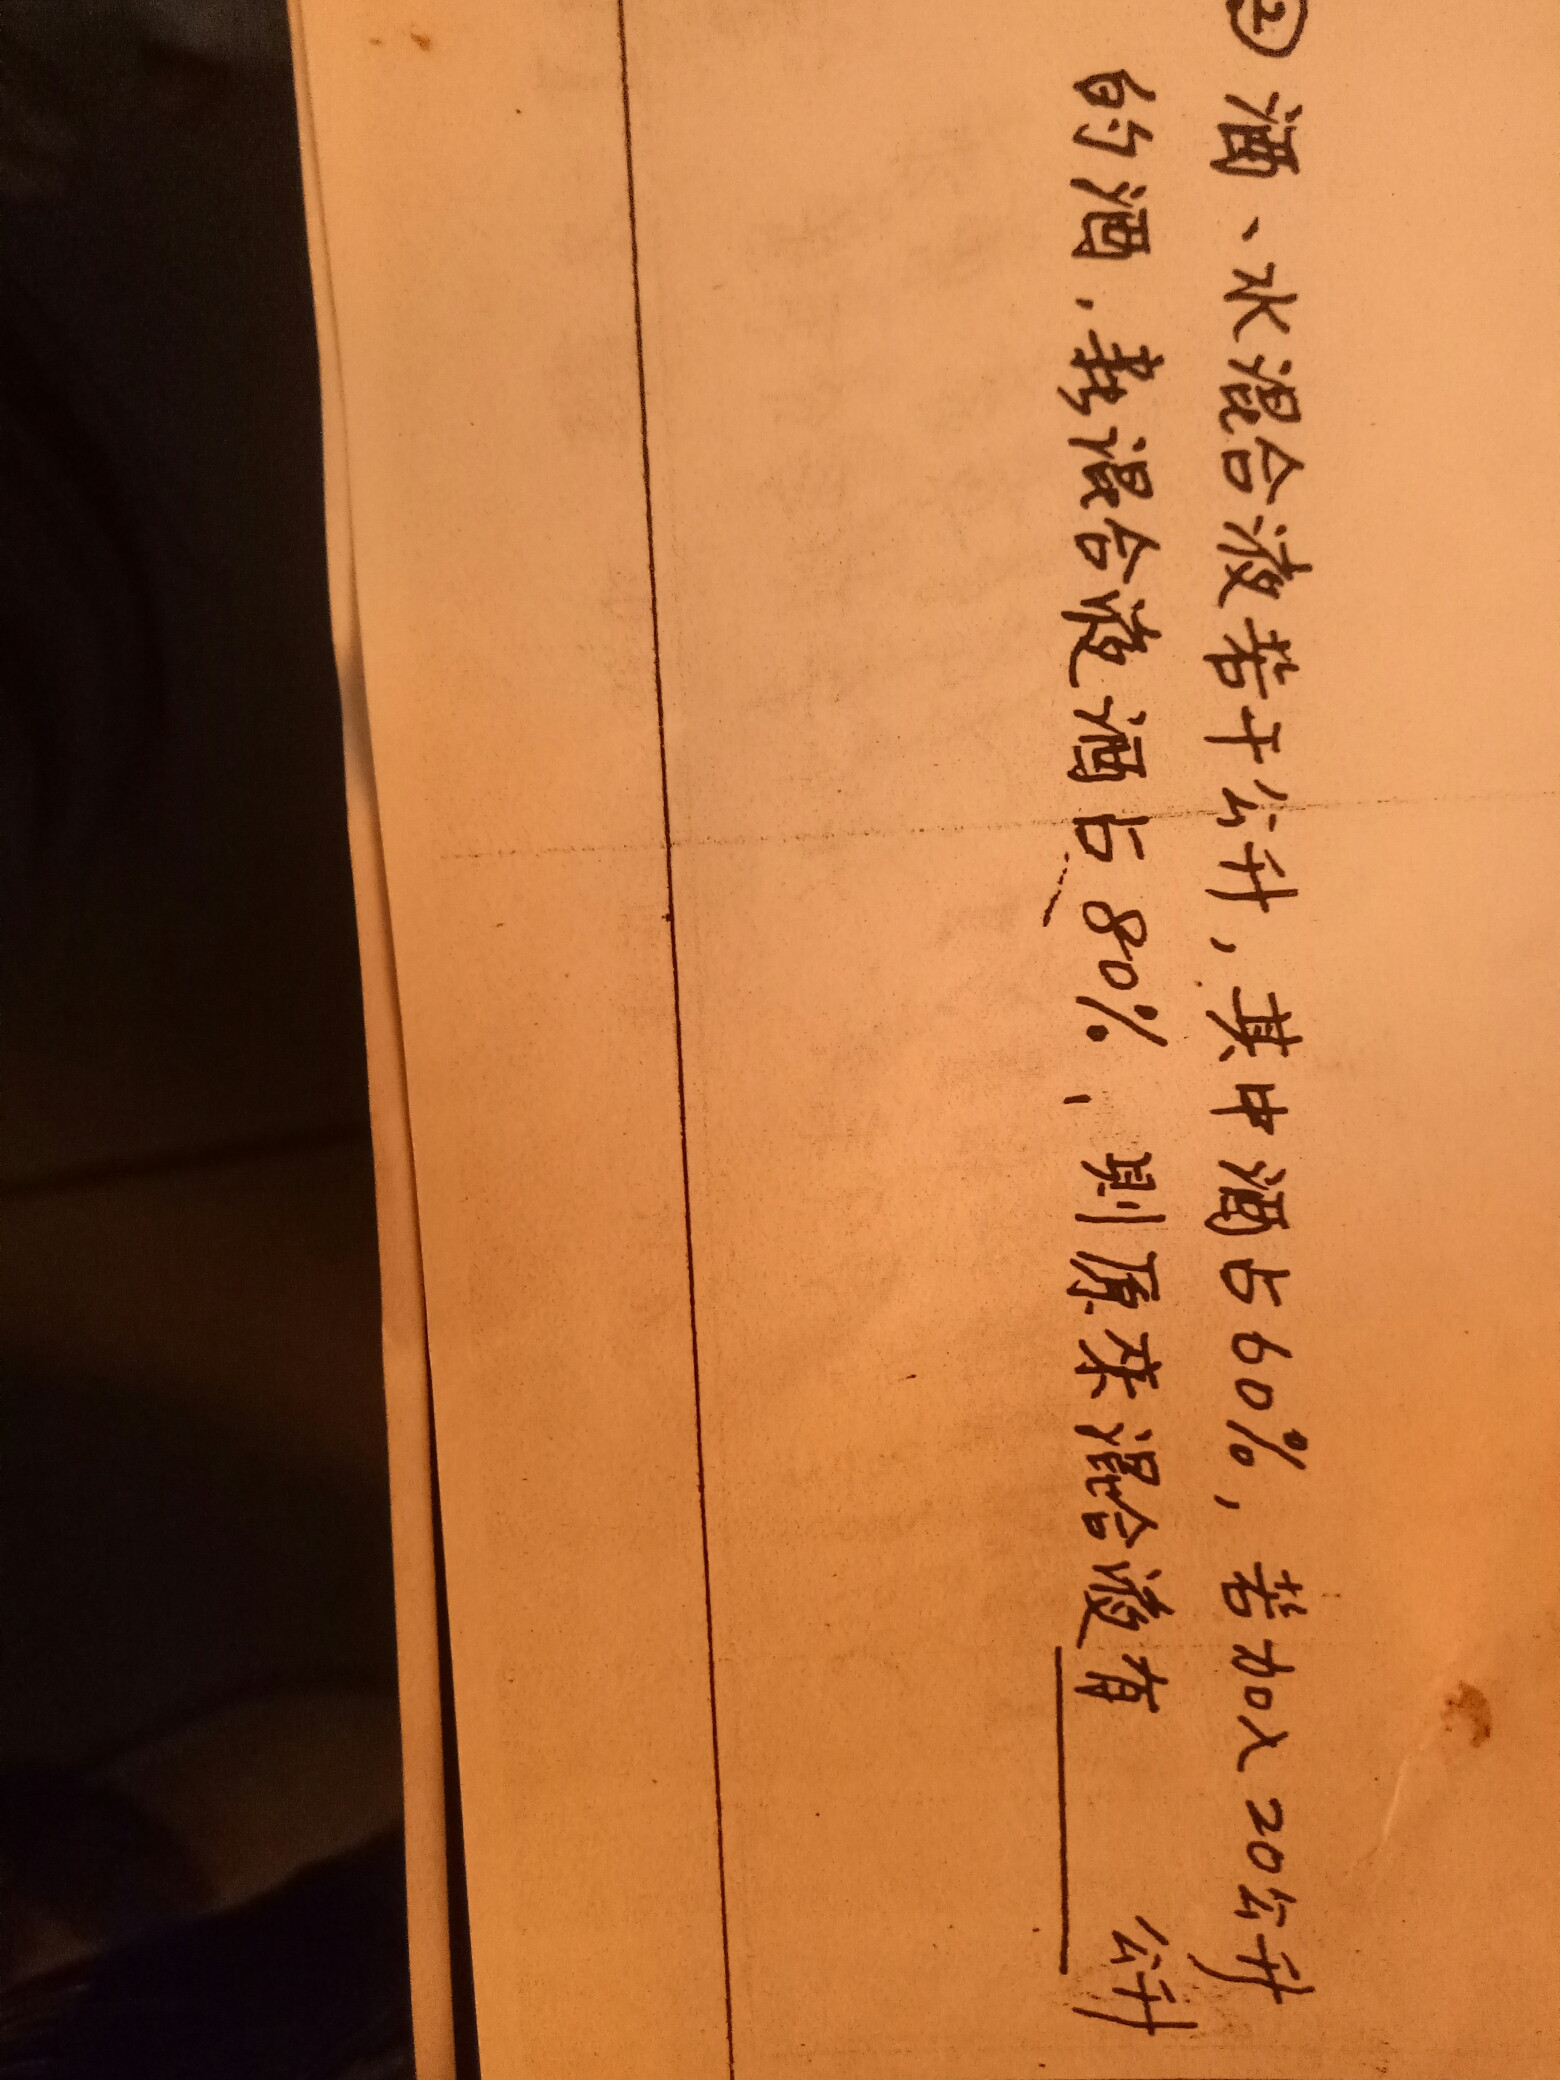 ② 酒、水混合液若干公升,其中酒占60%,若加入20公升
的酒,新混合液酒占80%,則原來混合液有＿＿＿公升